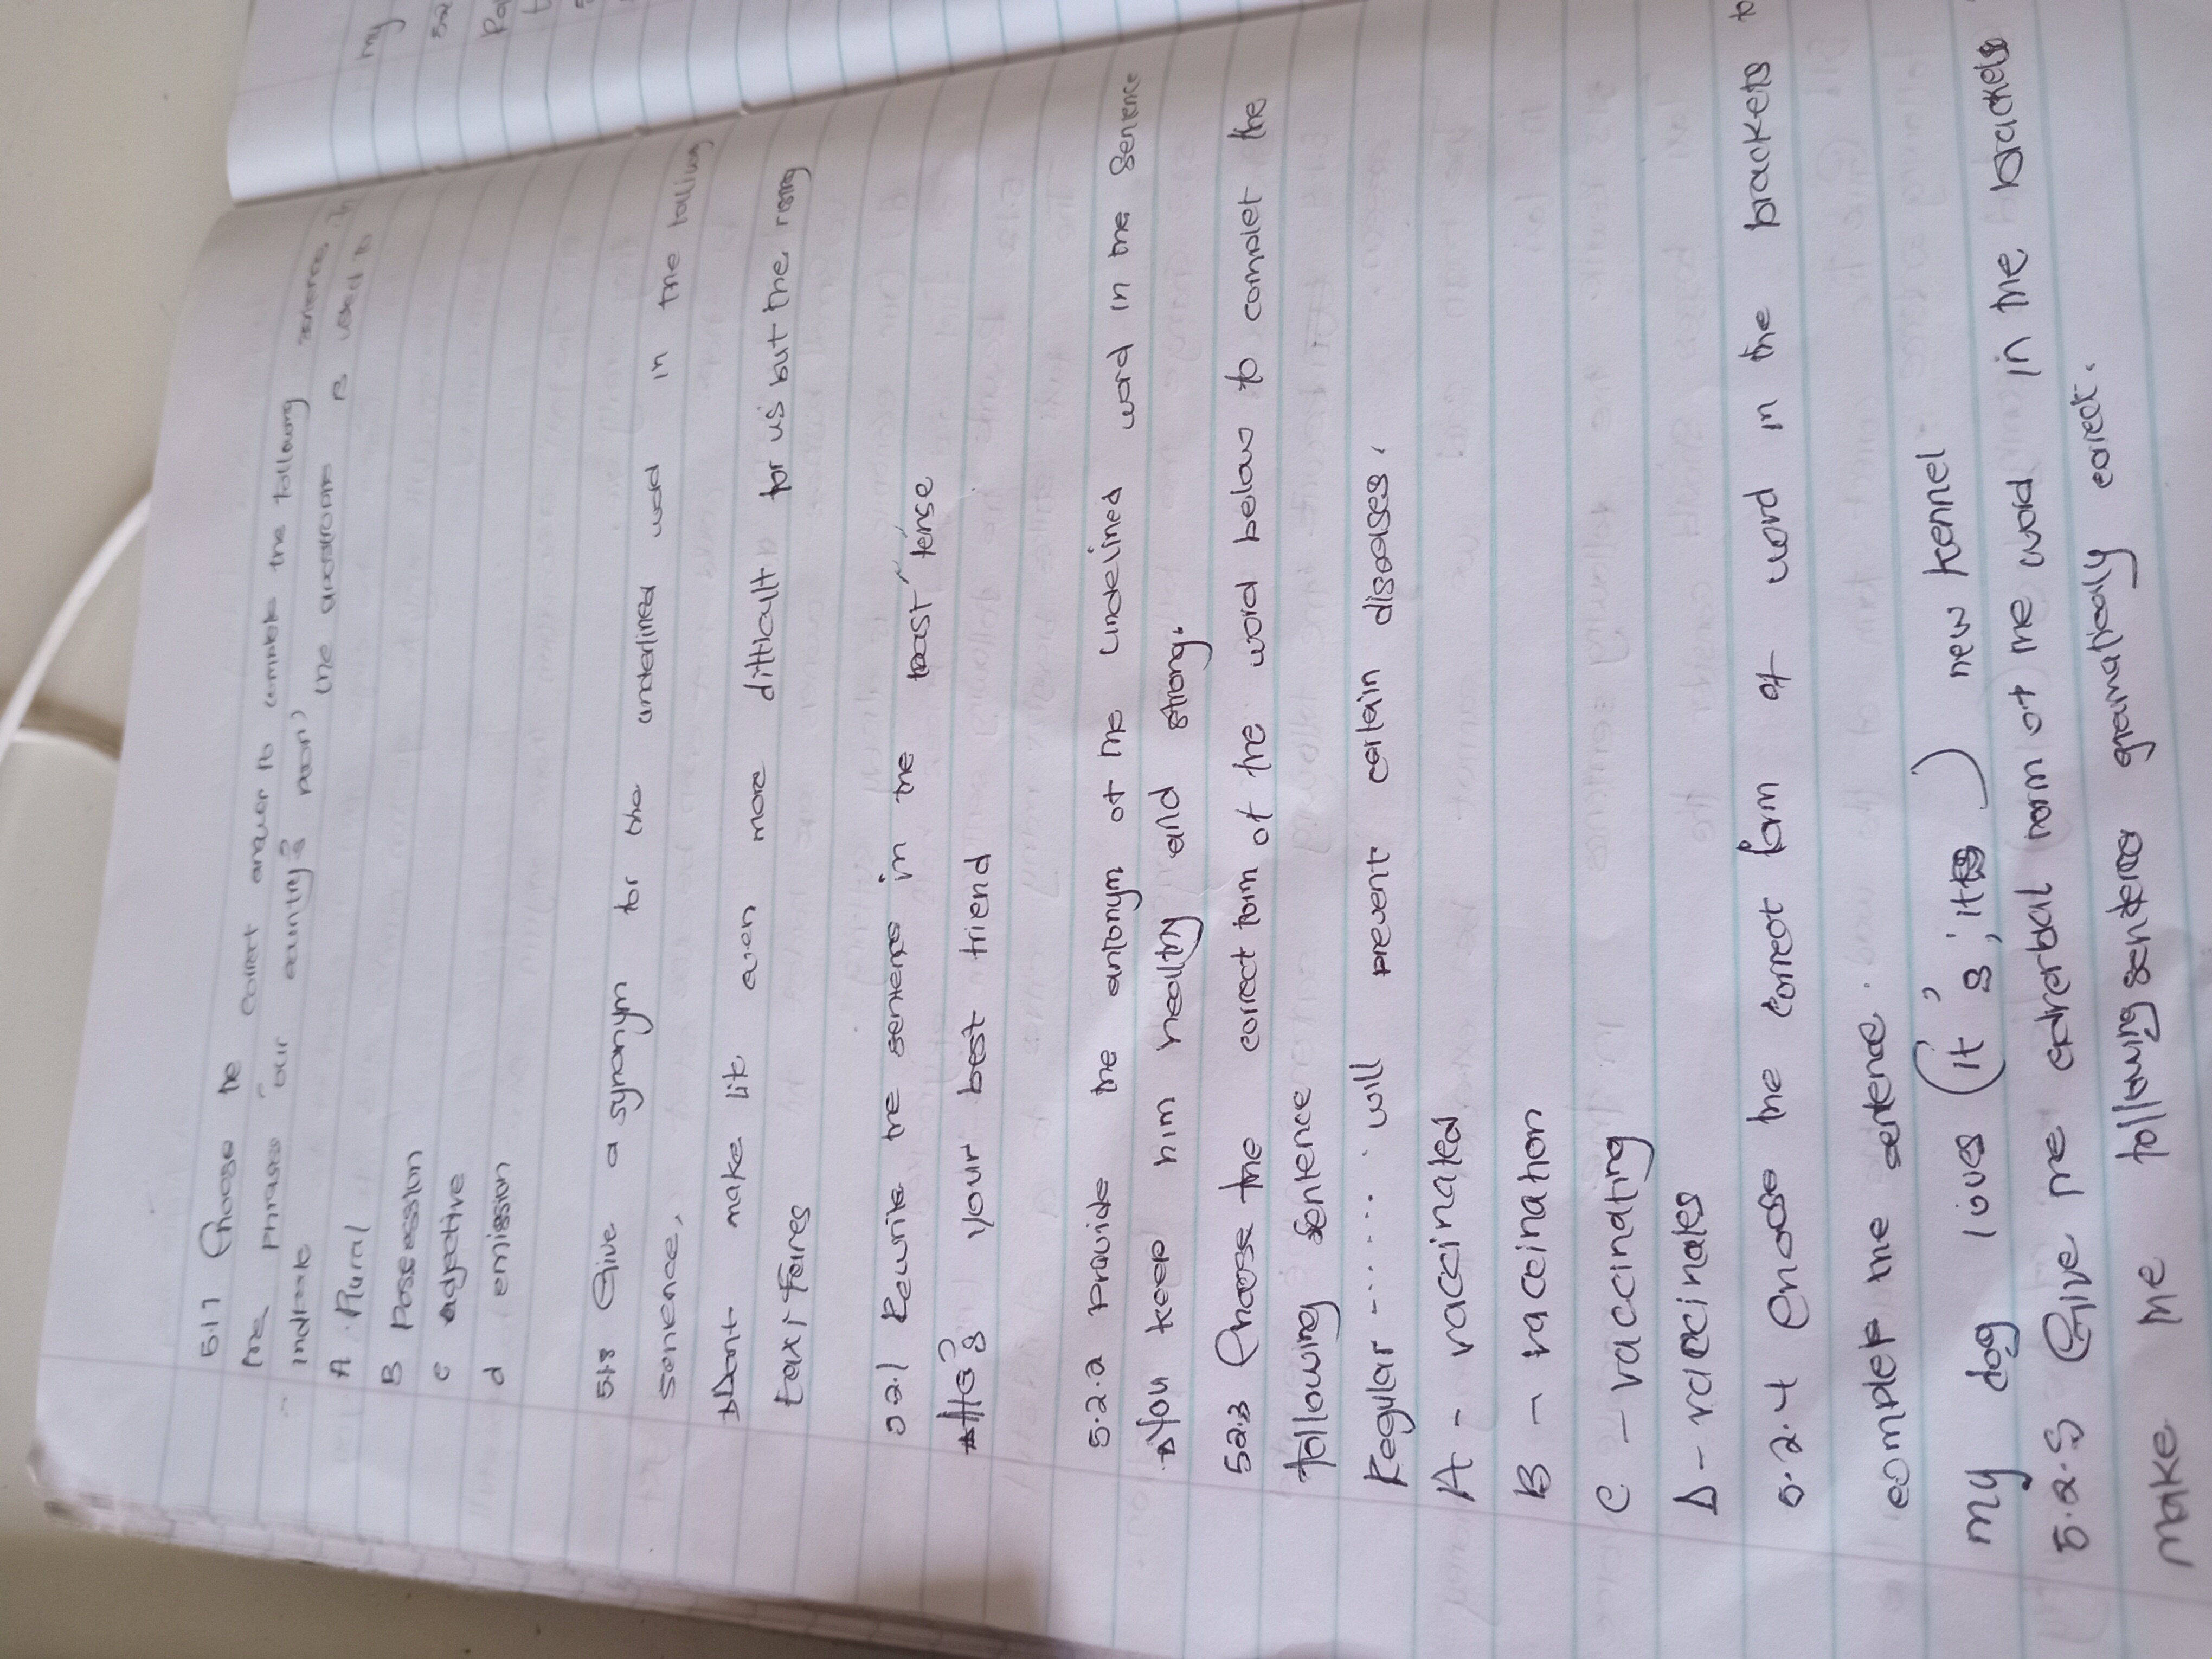 5.1.7 Choose the correct answer to complete the following sentence. In
the phrases "our country's poor" the apostrophe is used to
indicate
A Rural
B possession
c adjective
d emission
5.1.8 Give a synonym for the underlined word in the following
sentence,
Dont make life even more difficult for us but the rising
taxi Faires
5.2.1 Rewrite the sentence in the past tense
He's your best friend
5.2.2 Provide the antonym of the undelined word in the sentence
You keep him healthy and strong.
5.2.3 Choose the correct form of the word below to complet the
following sentence
Regular ........ will prevent certain diseases.
A - vaccinated
B - vaccination
C - vaccinating
D - vaccinates
5.2.4 Choose the correct form of word in the brackets to
complete the sentence.
my dog loves (it's, its) new kennel
5.2.5 Give the adverbial form of the word in the brackets
make the following sentence gramatically correct.
my
5.2